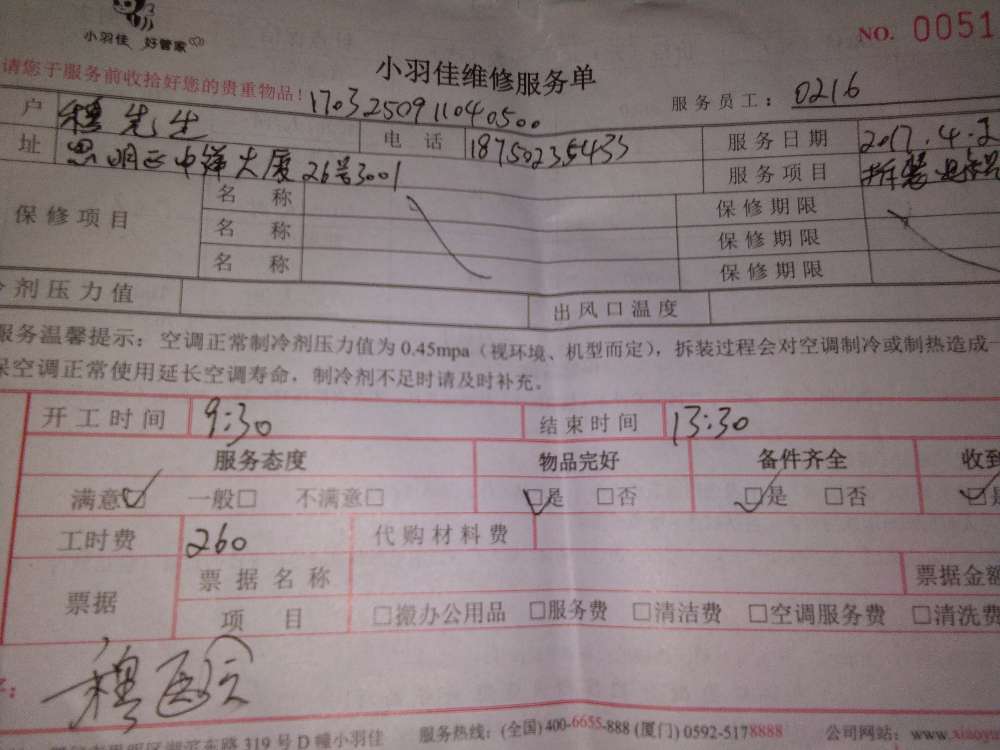 小羽佳 好管家
NO. 0051
请您于服务前收拾好您的贵重物品！
小羽佳维修服务单
1703250911040500
服务员工： 0216
户 穆先生 电话 18750235433 服务日期 2017.4.2
址 思明区中洋大厦26号3001 服务项目 拆装
保修项目 名称 保修期限
名称 保修期限
名称 保修期限
剂压力值 出风口温度
服务温馨提示：空调正常制冷剂压力值为0.45mpa（视环境、机型而定），拆装过程会对空调制冷或制热造成一
保空调正常使用延长空调寿命，制冷剂不足时请及时补充。
开工时间 9:30 结束时间 13:30
服务态度 物品完好 备件齐全 收到
满意☑ 一般□ 不满意□ ☑是 □否 ☑是 □否 ☑是
工时费 260 代购材料费
票据 票据名称 票据金额
项目 □搬办公用品 □服务费 □清洁费 □空调服务费 □清洗费
穆
东路319号D幢小羽佳 服务热线：(全国) 400-6655-888 (厦门) 0592-5178888 公司网站：www.xiaoyu